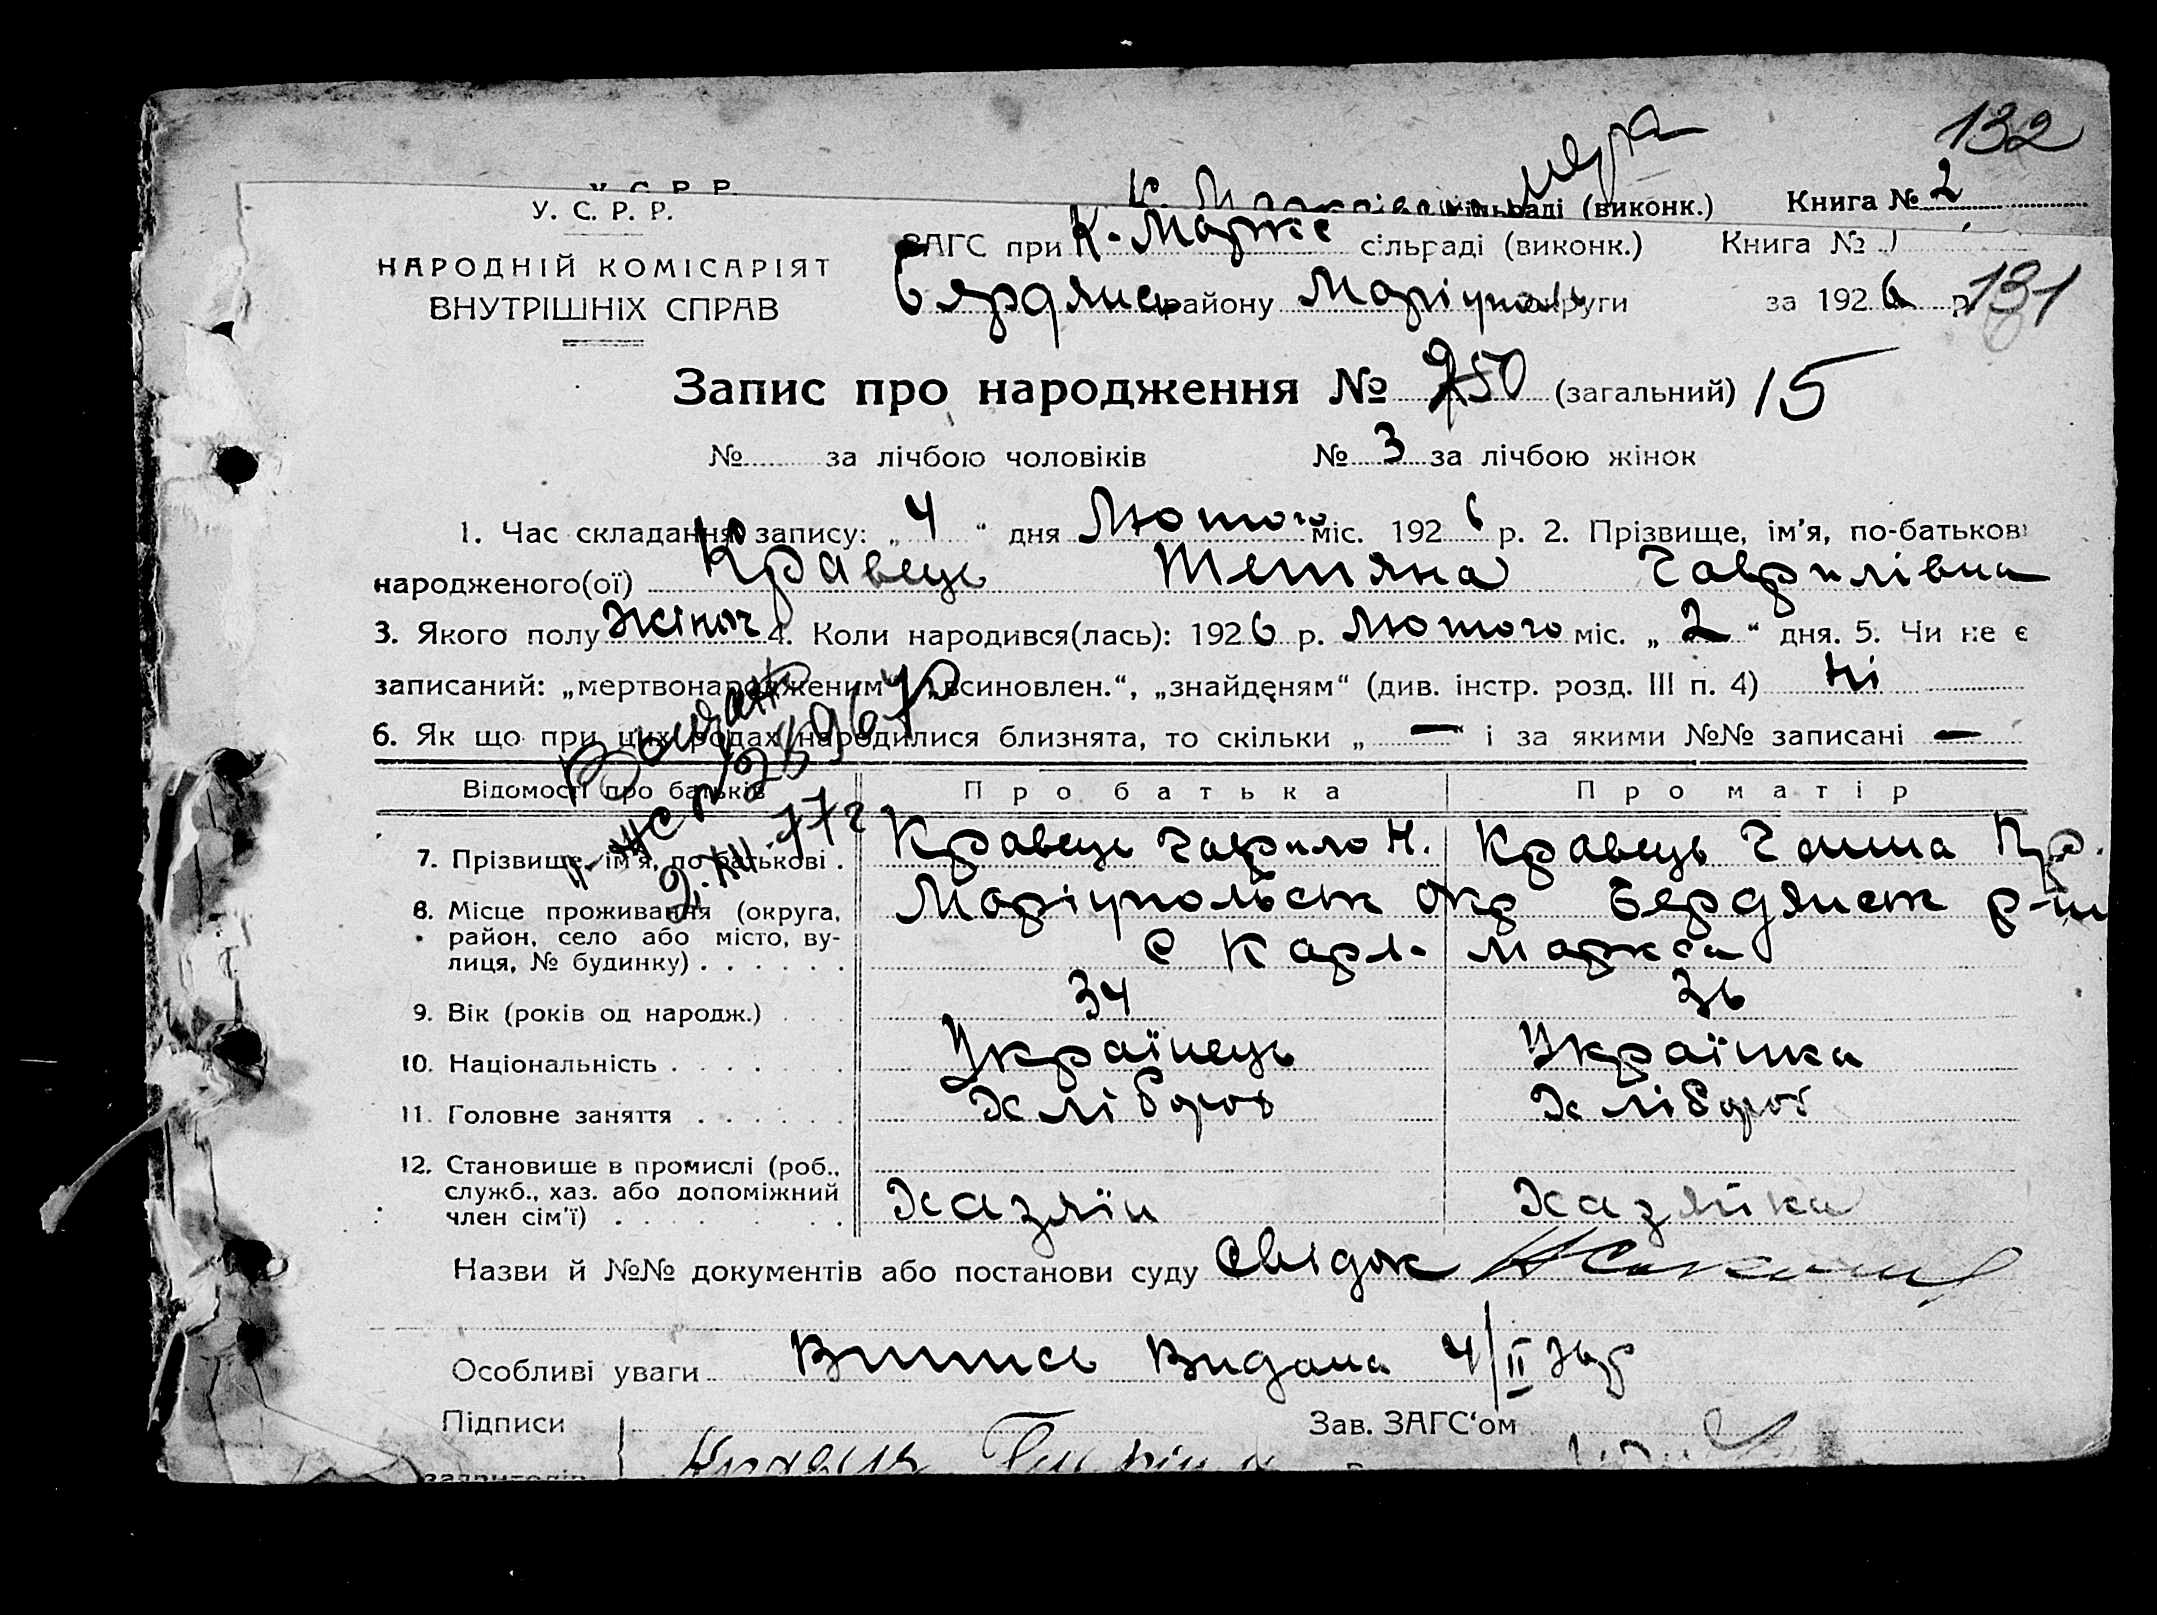 132
У. С. Р. Р.
К. сільраді (виконк.) Книга № 2
У. С. Р. Р.
ЗАГС при К. Маркс сільраді (виконк.) Книга № 1
НАРОДНІЙ КОМІСАРІЯТ
ВНУТРІШНІХ СПРАВ
Бердянськ району Маріуполь округи за 1926 р. 131
Запис про народження № 250 (загальний) 15
№ за лічбою чоловіків № 3 за лічбою жінок
1. Час складання запису: „ 4 “ дня Лютого міс. 1926 р. 2. Прізвище, ім'я, по-батькові
народженого(ої) Кравець Тетяна Гаврилівна
3. Якого полу жіноч 4. Коли народився(лась): 1926 р. Лютого міс. „ 2 “ дня. 5. Чи не є
записаний: „мертвонародженим“, „всиновлен.“, „знайденям“ (див. інстр. розд. III п. 4) Ні
6. Як що при цих родах народилися близнята, то скільки „ — “ і за якими №№ записані —
2.XII-77г
Відомості про батьків Про батька Про матір
7. Прізвище, ім'я, по батькові . Кравець Гаврило Н. Кравець Ганна Пр.
8. Місце проживання (округа, район, село або місто, вулиця, № будинку) . . . . . . Маріупольськ окр Бердянськ р-ну
С Карл-Маркса
9. Вік (років од народж.) . . . 34 36
10. Національність . . . . . . . Українець Українка
11. Головне заняття . . . . . . Хлібороб Хлібороб
12. Становище в промислі (роб.,
служб., хаз. або допоміжний
член сім'ї) . . . . . . Хазяїн Хазяйка
Назви й №№ документів або постанови суду Свідок
Особливі уваги Випись Видана 4/II 26р
Підписи Зав. ЗАГС‘ом
Кравець